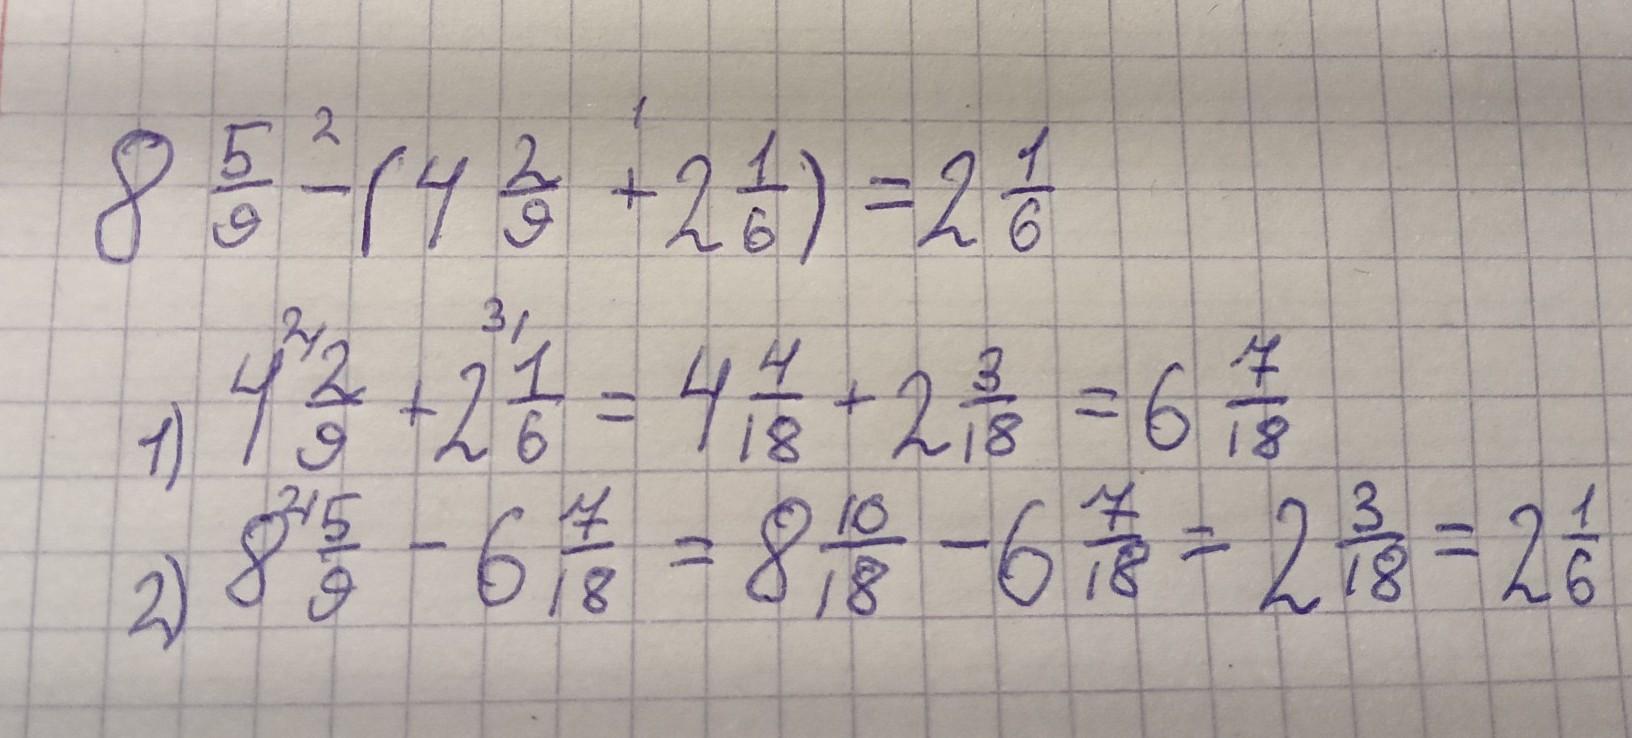 8 5/9 -² (4 2/9 +¹ 2 1/6) = 2 1/6
1) 4 ²⁾2/9 + 2 ³⁾1/6 = 4 4/18 + 2 3/18 = 6 7/18
2) 8 ²⁾5/9 - 6 7/18 = 8 10/18 - 6 7/18 = 2 3/18 = 2 1/6